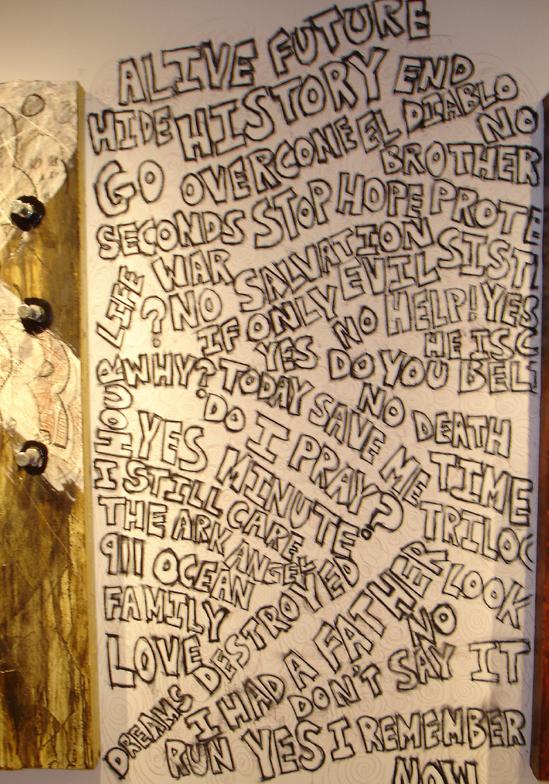 ALIVE FUTURE
HIDE HISTORY END
GO OVERCONE EL DIABLO
NO
BROTHER
SECONDS STOP HOPE PROTE
LIFE WAR SALVATION SIST
? NO IF ONLY EVIL
YES NO HELP! YES
HE IS C
HOUR WHY? TODAY SAVE ME
DO YOU BEL
NO DEATH
YES DO I PRAY? TIME
I STILL CARE MINUTE.
TRILOC
THE ARK ANGEL
911 OCEAN
FAMILY DESTROYED LOOK
LOVE
DREAMS
I HAD A FATHER NO
DON'T SAY IT
RUN YES I REMEMBER
NOW